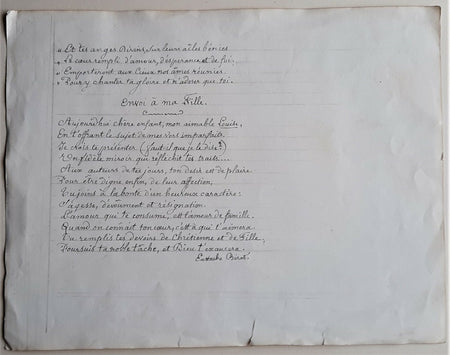 " Et tes anges Divins, sur leurs ailes bénies
" Le cœur rempli d'amour, d'espérance et de foi,
" Emporteront aux Cieux nos âmes réunies
" Pour y chanter ta gloire et n'adorer que toi.
Envoi à ma Fille.
Aujourd'hui chère enfant, mon aimable
En t'offrant le sujet de mes vers imparfaits,
Je crois te présenter (faut il que je le dise?)
Un fidèle miroir qui réfléchit tes traits...
Aux auteurs de tes jours, ton désir est de plaire
Pour être digne enfin, de leur affection,
Tu joins à la bonté d'un heureux caractère:
Sagesse, dévoûment et résignation.
L'amour qui te consume, c'est l'amour de famille.
Quand on connait ton cœur, c'est à qui t'aimera.
Tu remplis tes devoirs de Chrétienne et de Fille,
Poursuis ta noble tâche, et Dieu t'exaucera.